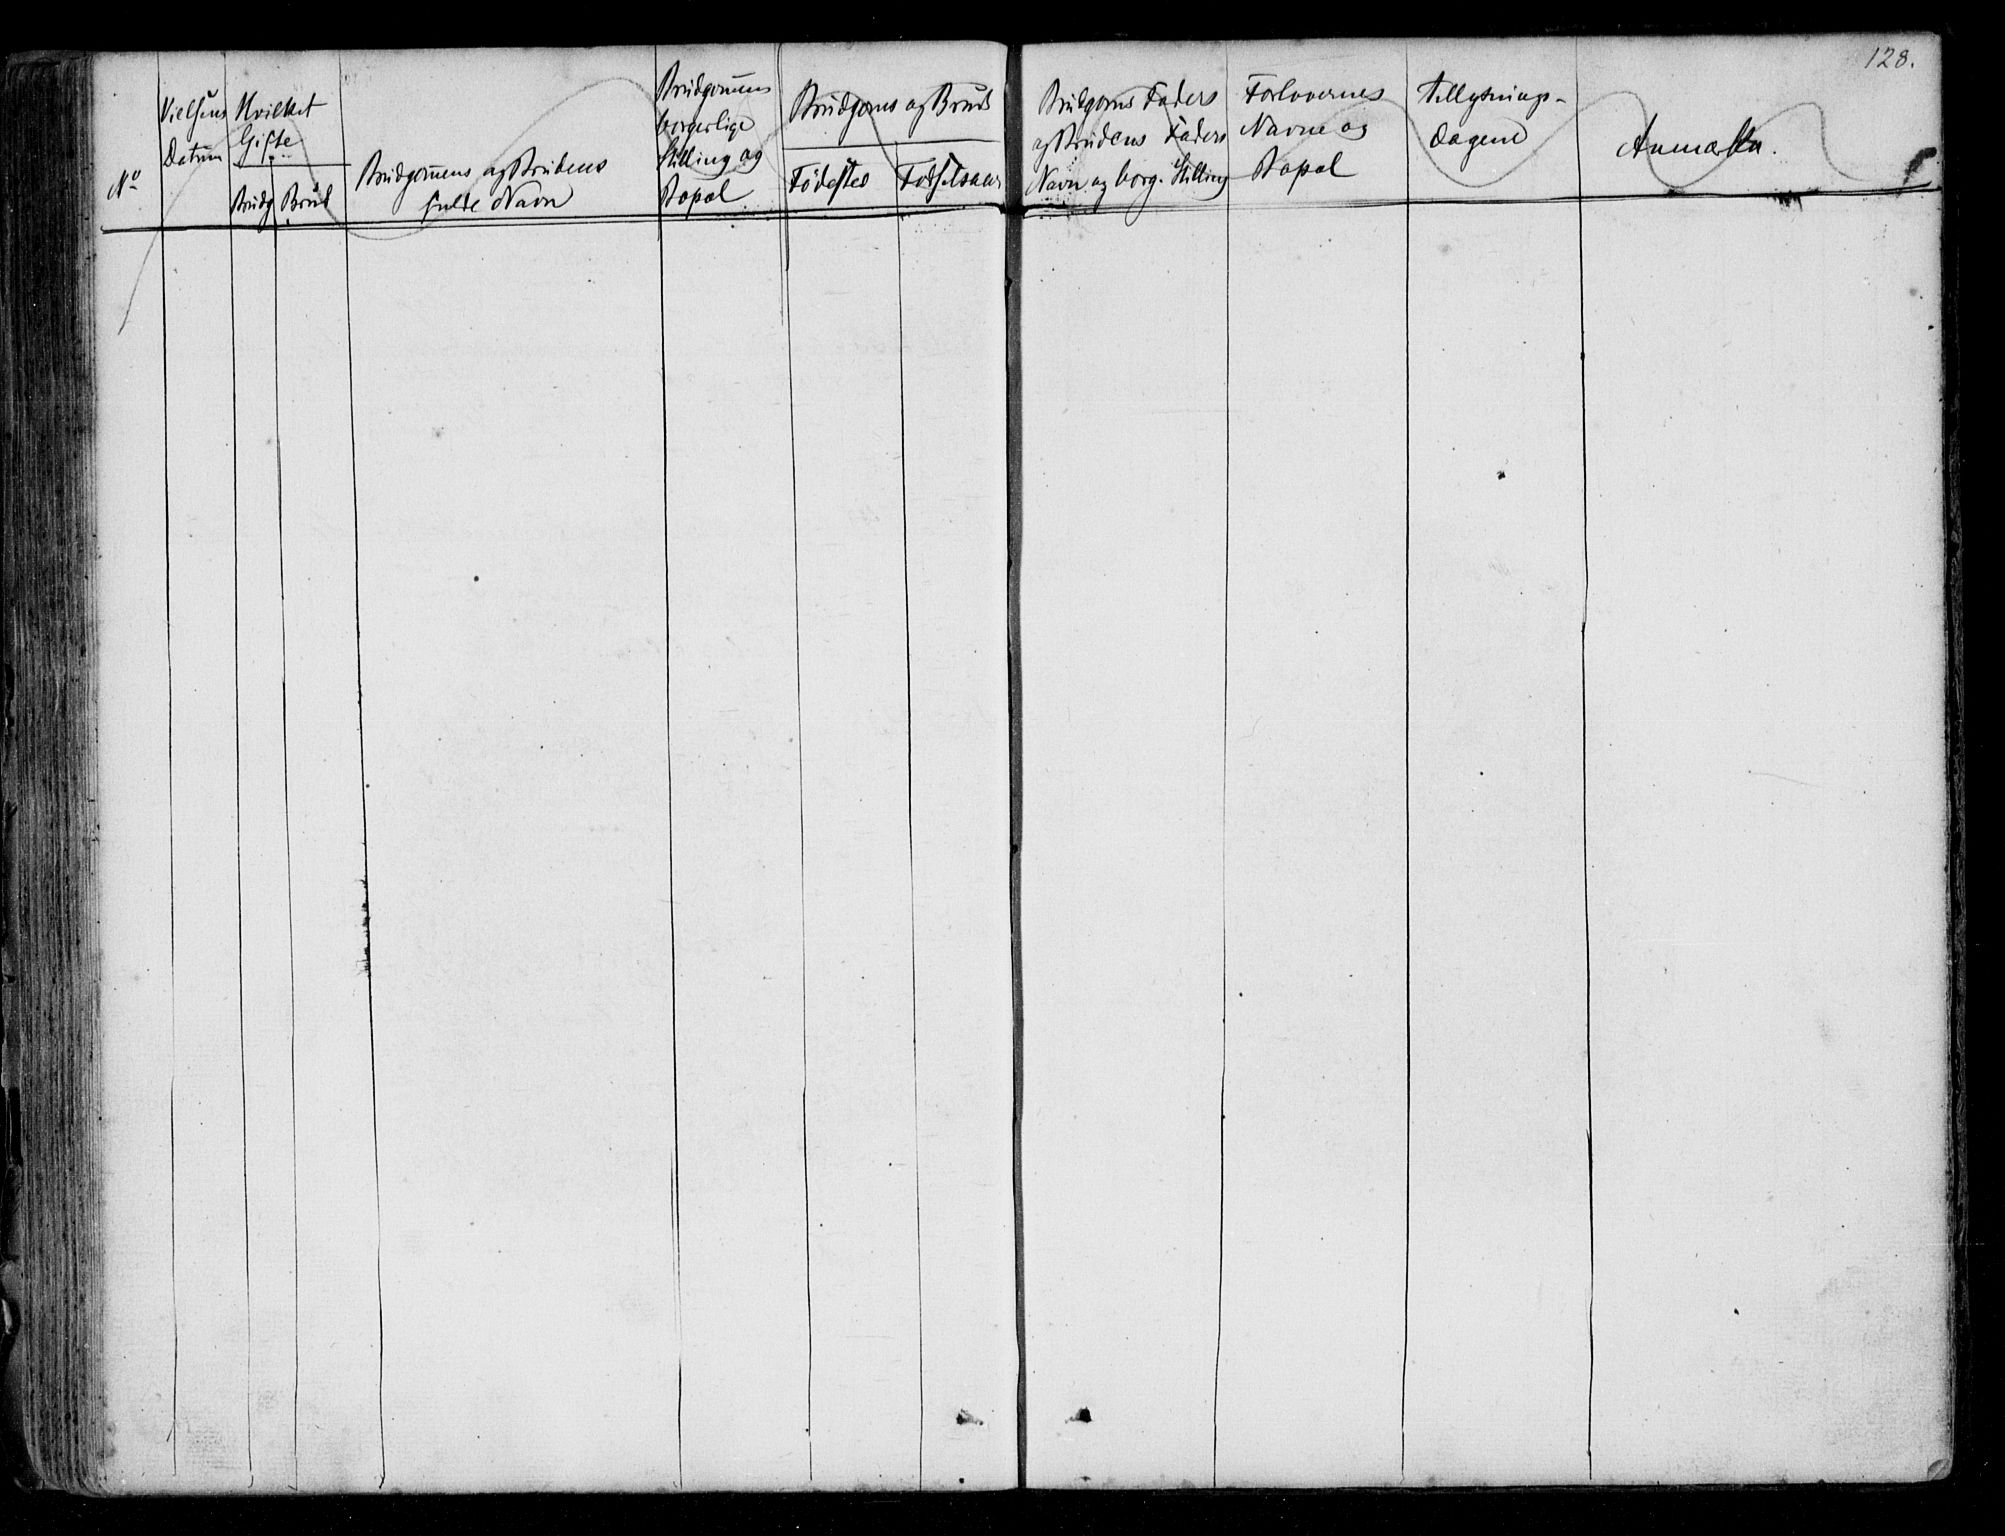 128.
No
Vielsens
Datum
Hvilket
Gifte
Brudg
Brud
Brudgomens og Brudens
fulde Navn
Brudgomens
borgerlige
Stilling og
Bopæl
Brudgoms og Bruds
Fødested
Fødselsaar
Brudgoms Faders
og Brudens Faders
Navn og borg. Stilling
Forlovernes
Navne og
Bopæl
Tillysnings-
dagene
Anmærkn.